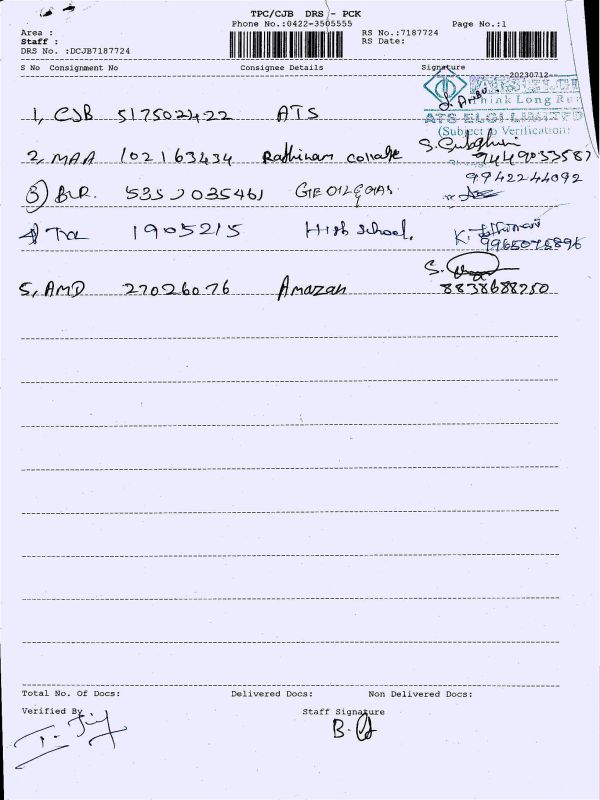 TPC/CJB DRS - PCK
Phone No.:0422-3505555 Page No.:1
Area : RS No.:7187724
Staff : RS Date:
DRS No. :DCJB7187724
S No Consignment No Consignee Details Signature
20230712
ATS ELGI
Think Long Ru
1, CJB 517502422 ATS
ATS ELGI LIMITED
(Subject to Verification)
2, MAA 102163434 Rathinam college S.
9449033587
9942244092
3) BLR. 535
4) 1905215 High School. K.
9965075896
5, AMD 27026076 Amazan S.
8838688750
Total No. Of Docs: Delivered Docs: Non Delivered Docs:
Verified By Staff Signature